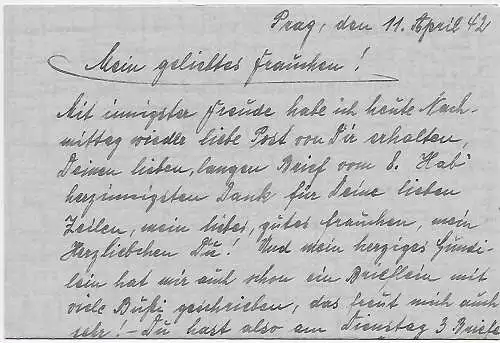 Prag, den 11. April 42
Mein geliebtes Frauchen!
Mit innigster Freude habe ich heute Nach-
mittag wieder liebe Post von Dir erhalten,
Deinen lieben, langen Brief vom 8. Hab'
herzinnigsten Dank für Deine lieben
Zeilen, mein liebes, gutes Frauchen, mein
Herzliebchen Du! Und mein herziges Gundi-
lein hat mir auch schon ein Brieflein mit
viele Bußi geschrieben, das freut mich auch
sehr! - Du hast also am Dienstag 3 Briefe